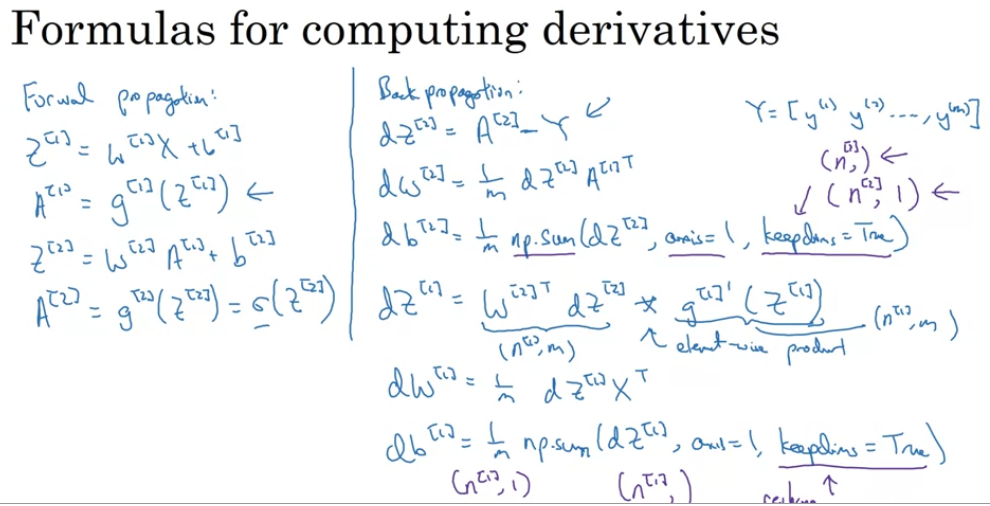 Formulas for computing derivatives
Forward propagation:
Z^[1] = W^[1]X + b^[1]
A^[1] = g^[1](Z^[1]) ←
Z^[2] = W^[2] A^[1] + b^[2]
A^[2] = g^[2](Z^[2]) = σ(Z^[2])
Back propagation:
dZ^[2] = A^[2] - Y ↙
dW^[2] = 1/m dZ^[2] A^[1]T
db^[2] = 1/m np.sum(dZ^[2], axis=1, keepdims=True)
Y = [y^(1) y^(2) ..., y^(m)]
(n^[2],) ←
↙ (n^[2], 1) ←
dZ^[1] = W^[2]T dZ^[2] * g^[1]'(Z^[1])
(n^[1], m) ↖ element-wise product (n^[1], m)
dW^[1] = 1/m dZ^[1] X^T
db^[1] = 1/m np.sum(dZ^[1], axis=1, keepdims=True)
(n^[1], 1) (n^[1],) ↑